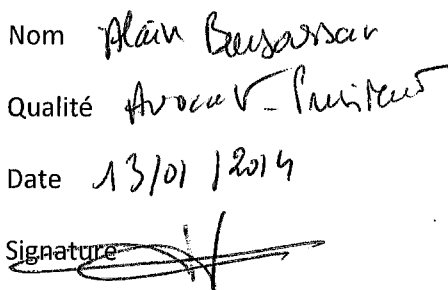 Nom Alain Bensoussan
Qualité Avocat - Président
Date 13/01/2014
Signature